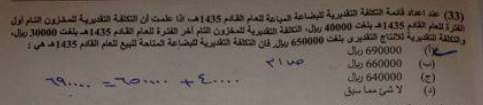 (33) عند اعداد قائمة التكلفة التقديرية للبضاعة المباعة للعام القادم 1435هـ، اذا علمت أن التكلفة التقديرية للمخزون التام أول
الفترة للعام القادم 1435هـ بلغت 40000 ريال، التكلفة التقديرية للمخزون التام آخر الفترة للعام القادم 1435هـ بلغت 30000 ريال،
والتكلفة التقديرية للانتاج التقديرى بلغت 650000 ريال، فان التكلفة التقديرية للبضاعة المتاحة للبيع للعام القادم 1435هـ هي :
(أ) 690000 ريال
(ب) 660000 ريال ص ٣١
(ج) 640000 ريال
(د) لا شئ مما سبق
٦٩٠٠٠٠ = ٦٥٠٠٠٠ + ٤٠٠٠٠